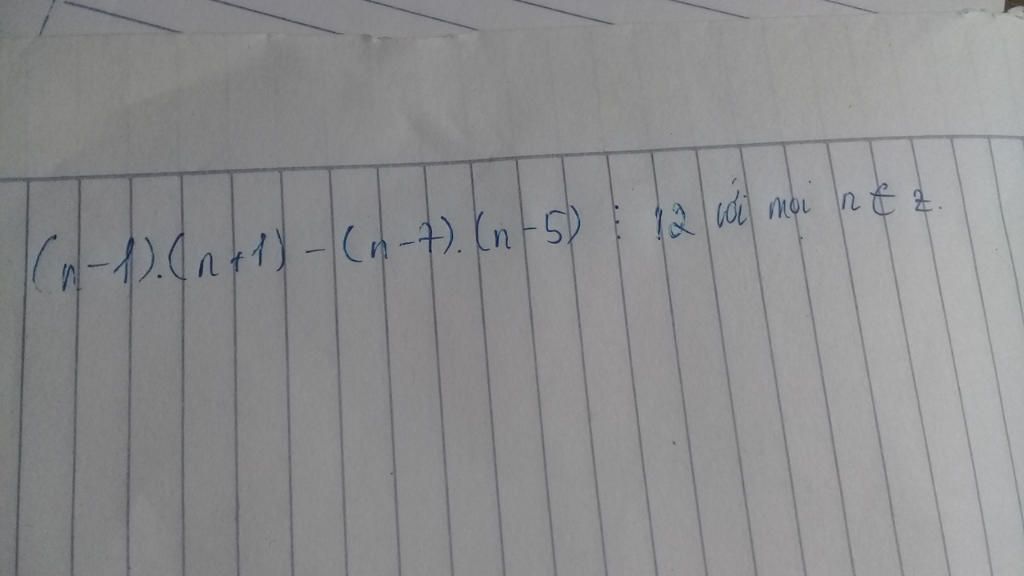 (n-1).(n+1)-(n-7).(n-5) ⋮ 12 với mọi n ∈ z.